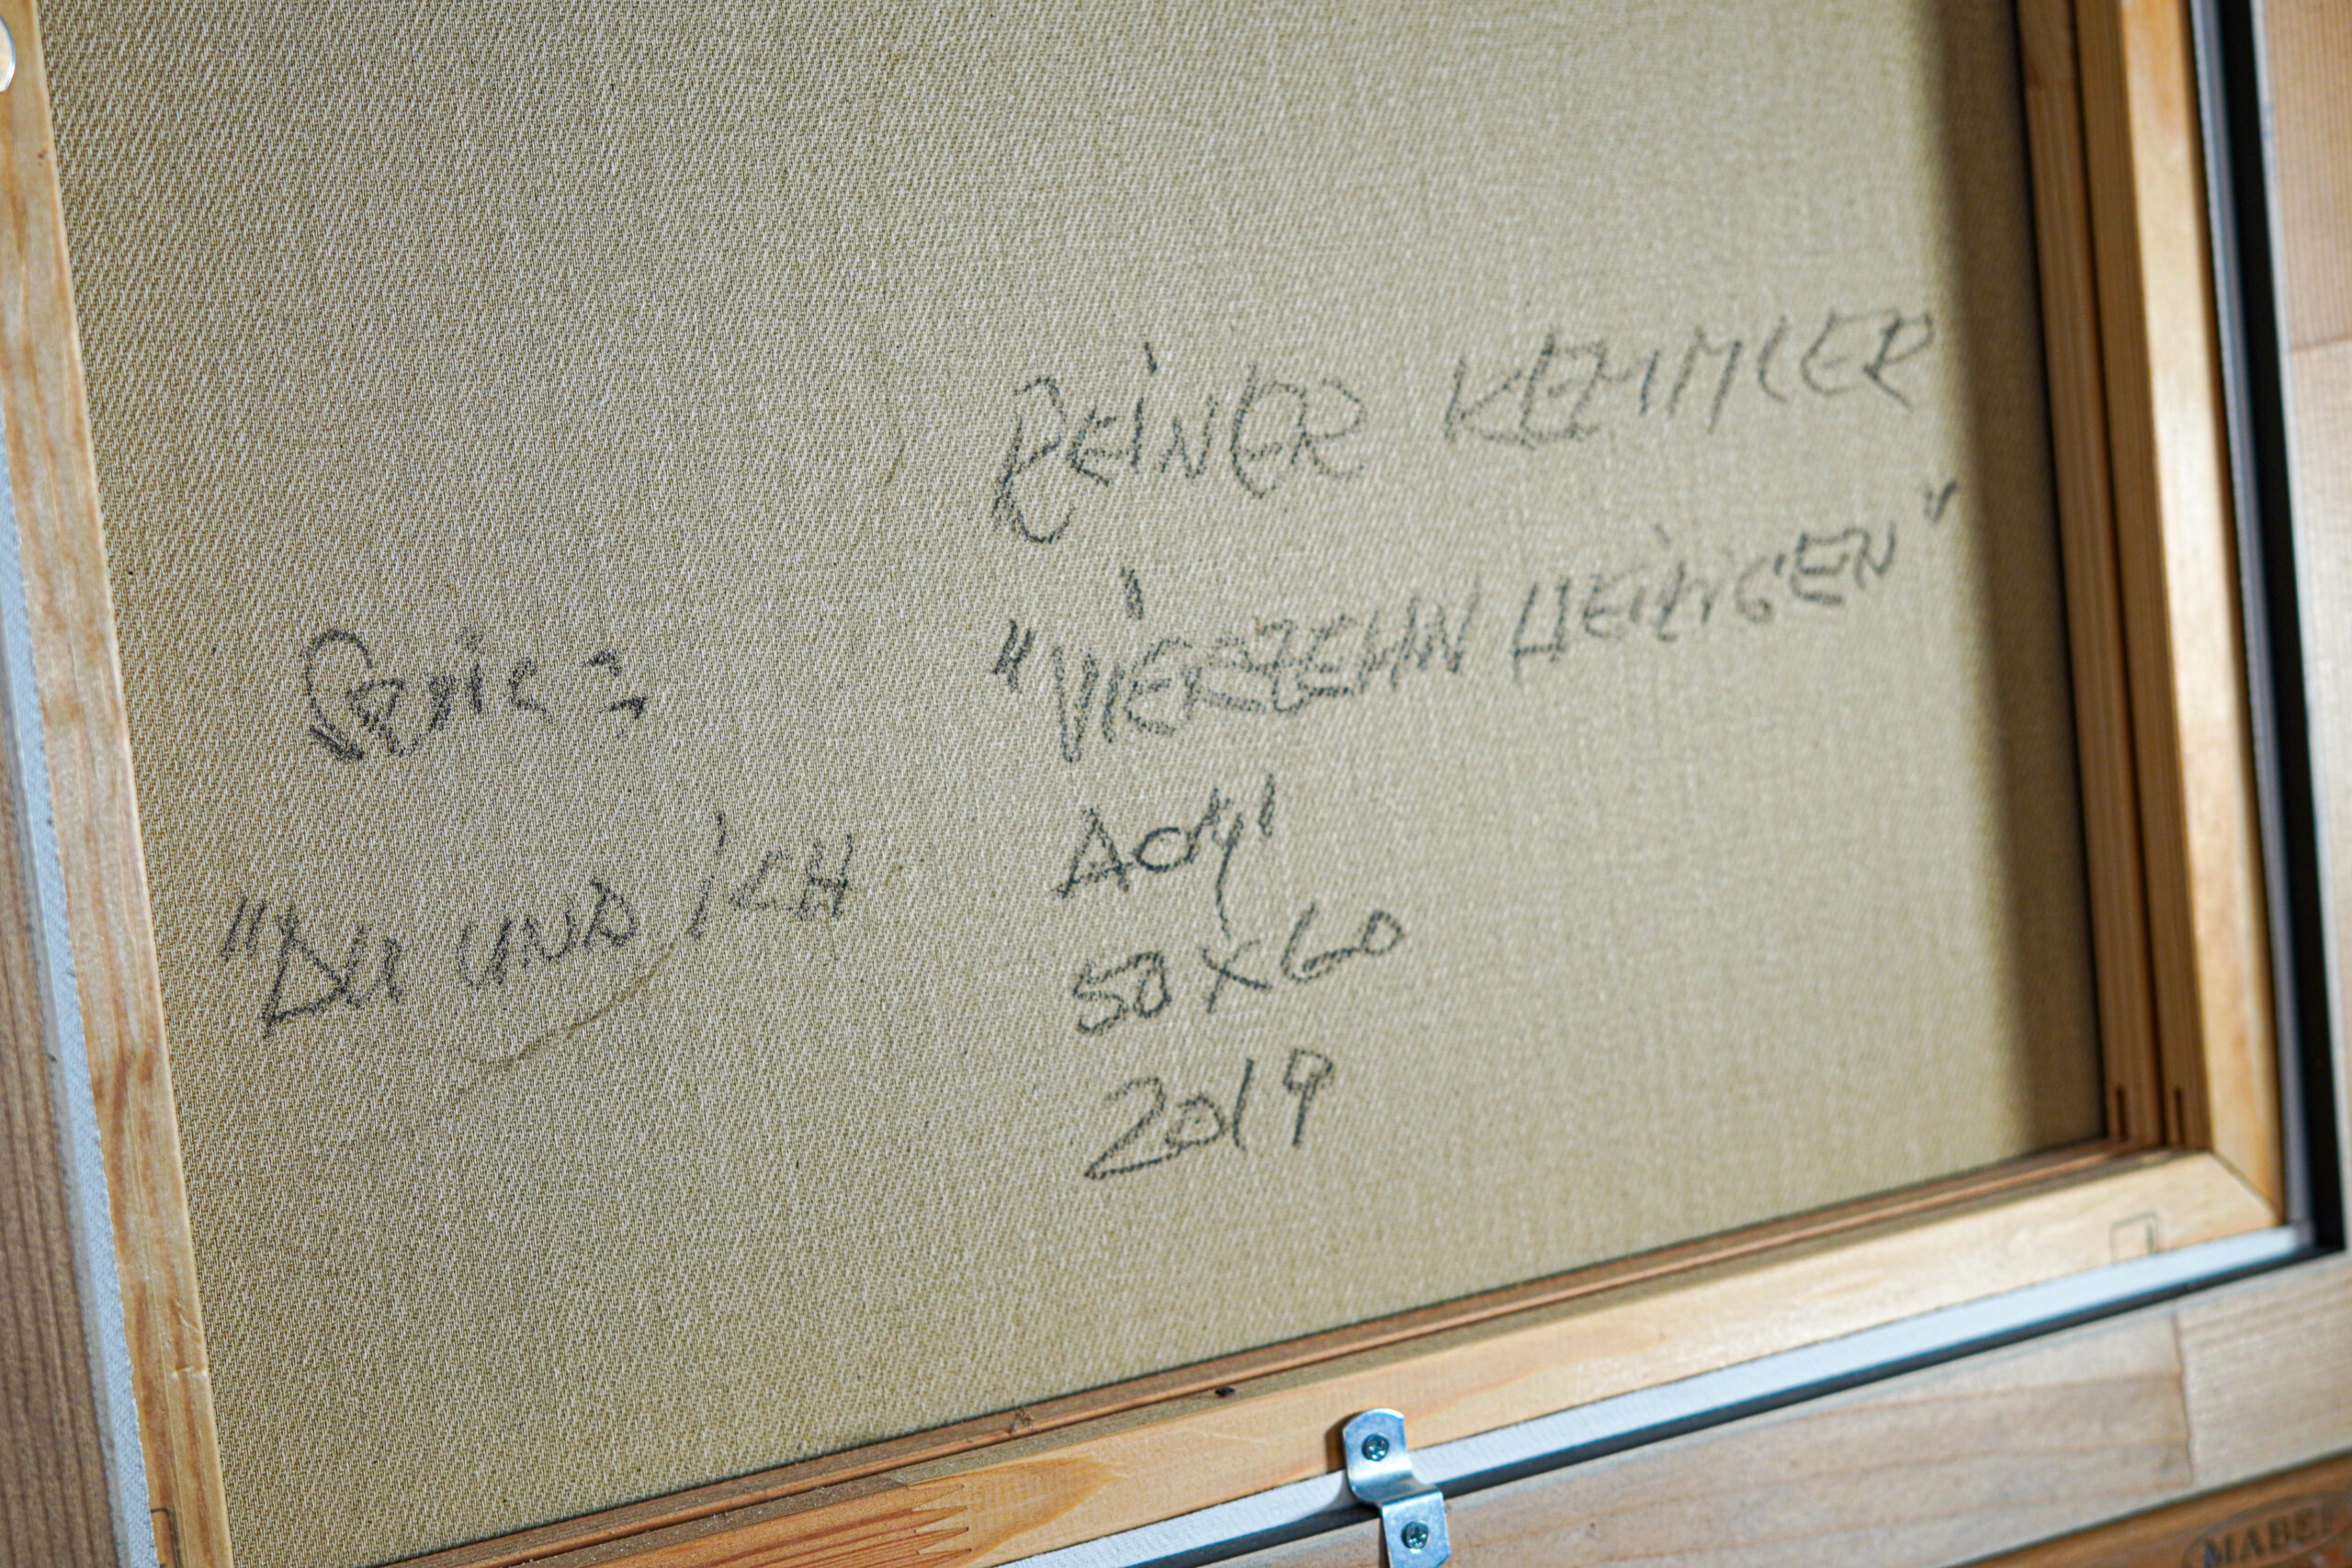 REINER KEMMLER
"VIERZEHN HEILIGEN"
Acryl
50 x 60
2019
Serie:
"DU UND ICH
MABE